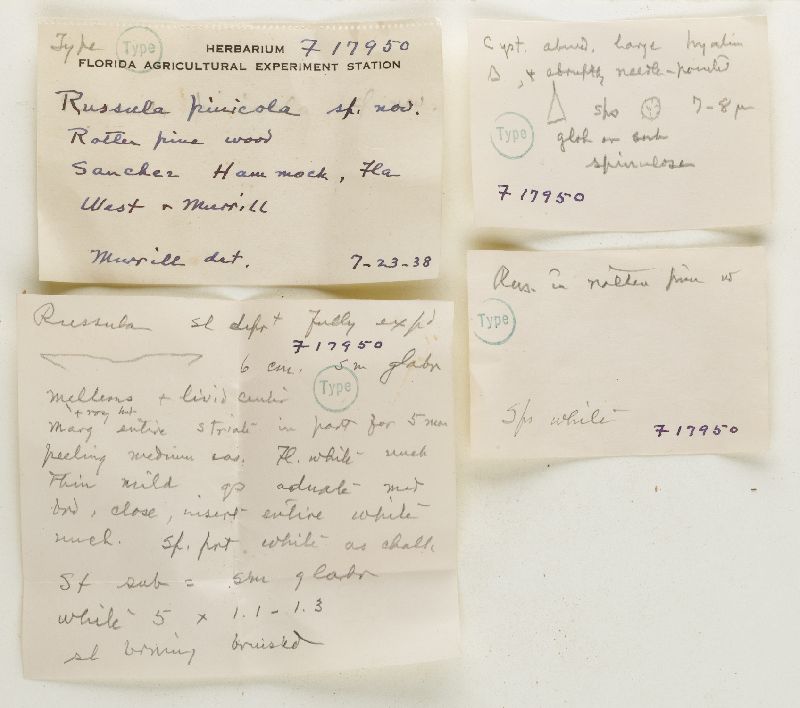 Type Type HERBARIUM F 17950
FLORIDA AGRICULTURAL EXPERIMENT STATION
Russula pinicola sp. nov.
Rotten pine wood
Sanchez Hammock, Fla
West & Murrill
Murrill det. 7-23-38
Cyst. abund. large hyalin
& abruptly needle-pointed
sps 7-8 µ
Type glob or sub
spinulose
F 17950
Rus. in rotten pine w
Type
Sps white
F 17950
Russula sl depr fully exp'd
F 17950
6 cm. sm glabr
Type
melleous + livid center
+ rosy
marg entire striate in part for 5 mm
peeling medium eas. Fl. white unch
thin mild gs adnate med
brd, close, insert entire white
unch. Sp. prt white as chalk
St sub = sm glabr
white 5 x 1.1-1.3
sl brning bruised